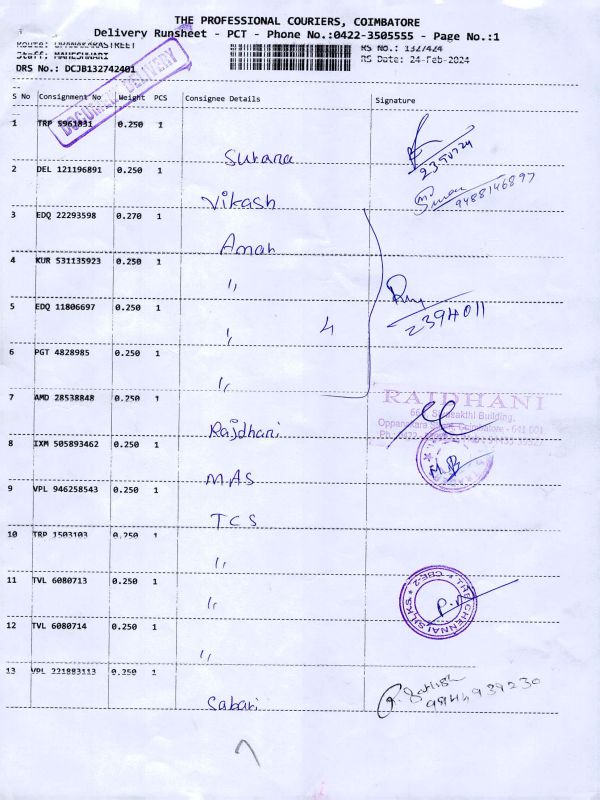 THE PROFESSIONAL COURIERS, COIMBATORE
Delivery Runsheet - PCT - Phone No.:0422-3505555 - Page No.:1
Staff: MAHESHWARI
RS No.: 1327424
DRS No.: DCJB132742401
RS Date: 24-Feb-2024
DOCUMENT DELIVERY
S No Consignment No Weight PCS Consignee Details Signature
1 TRP 5961831 0.250 1
Surana
2 DEL 121196891 0.250 1
9488146897
Vikash
3 EDQ 22293598 0.270 1
Aman
4 KUR 531135923 0.250 1
〃
5 EDQ 11806697 0.250 1
2394011
〃 4
6 PGT 4828985 0.250 1
〃
7 AMD 28538848 0.250 1
RAJDHANI
Rajdhani
8 IXM 505893462 0.250 1
M.B
MAS
9 VPL 946258543 0.250 1
TCS
10 TRP 1503103 0.250 1
〃
11 TVL 6080713 0.250 1
〃
12 TVL 6080714 0.250 1
〃
13 VPL 221883113 0.250 1
Sabari